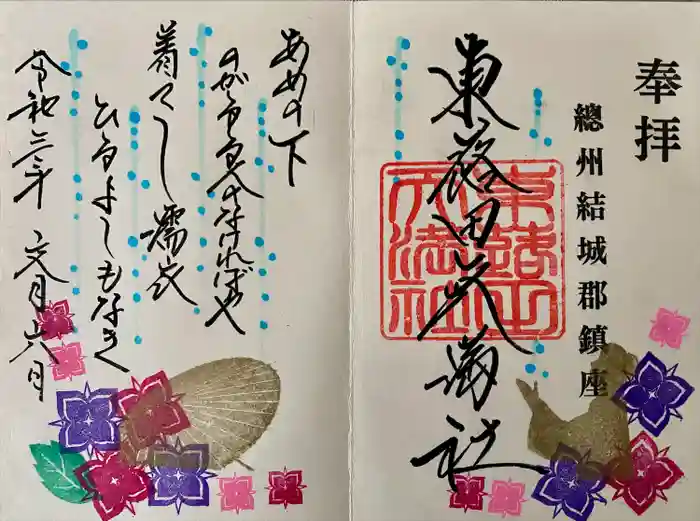 奉拝
總州結城郡鎮座
東蕗田天満社
東蕗田天満社
あめの下
のがるる人のなければや
着てし濡衣
ひるよしもなき
令和三年 六月六日